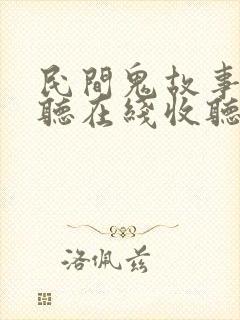 民間鬼故事
聽在綫收聽
洛佩茲